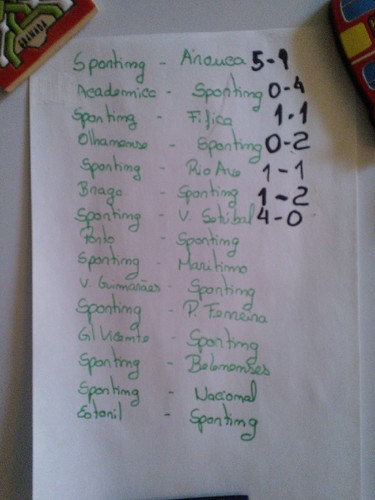 GRANADA
Sporting - Arouca 5-1
Academica - Sporting 0-4
Sporting - Fifica 1-1
Olhanense - Sporting 0-2
Sporting - Rio Ave 1-1
Braga - Sporting 1-2
Sporting - V. Setúbal 4-0
Porto - Sporting
Sporting - Maritimo
V. Guimarães - Sporting
Sporting - P. Ferreira
Gil Vicente - Sporting
Sporting - Belenenses
Sporting - Nacional
Estoril - Sporting